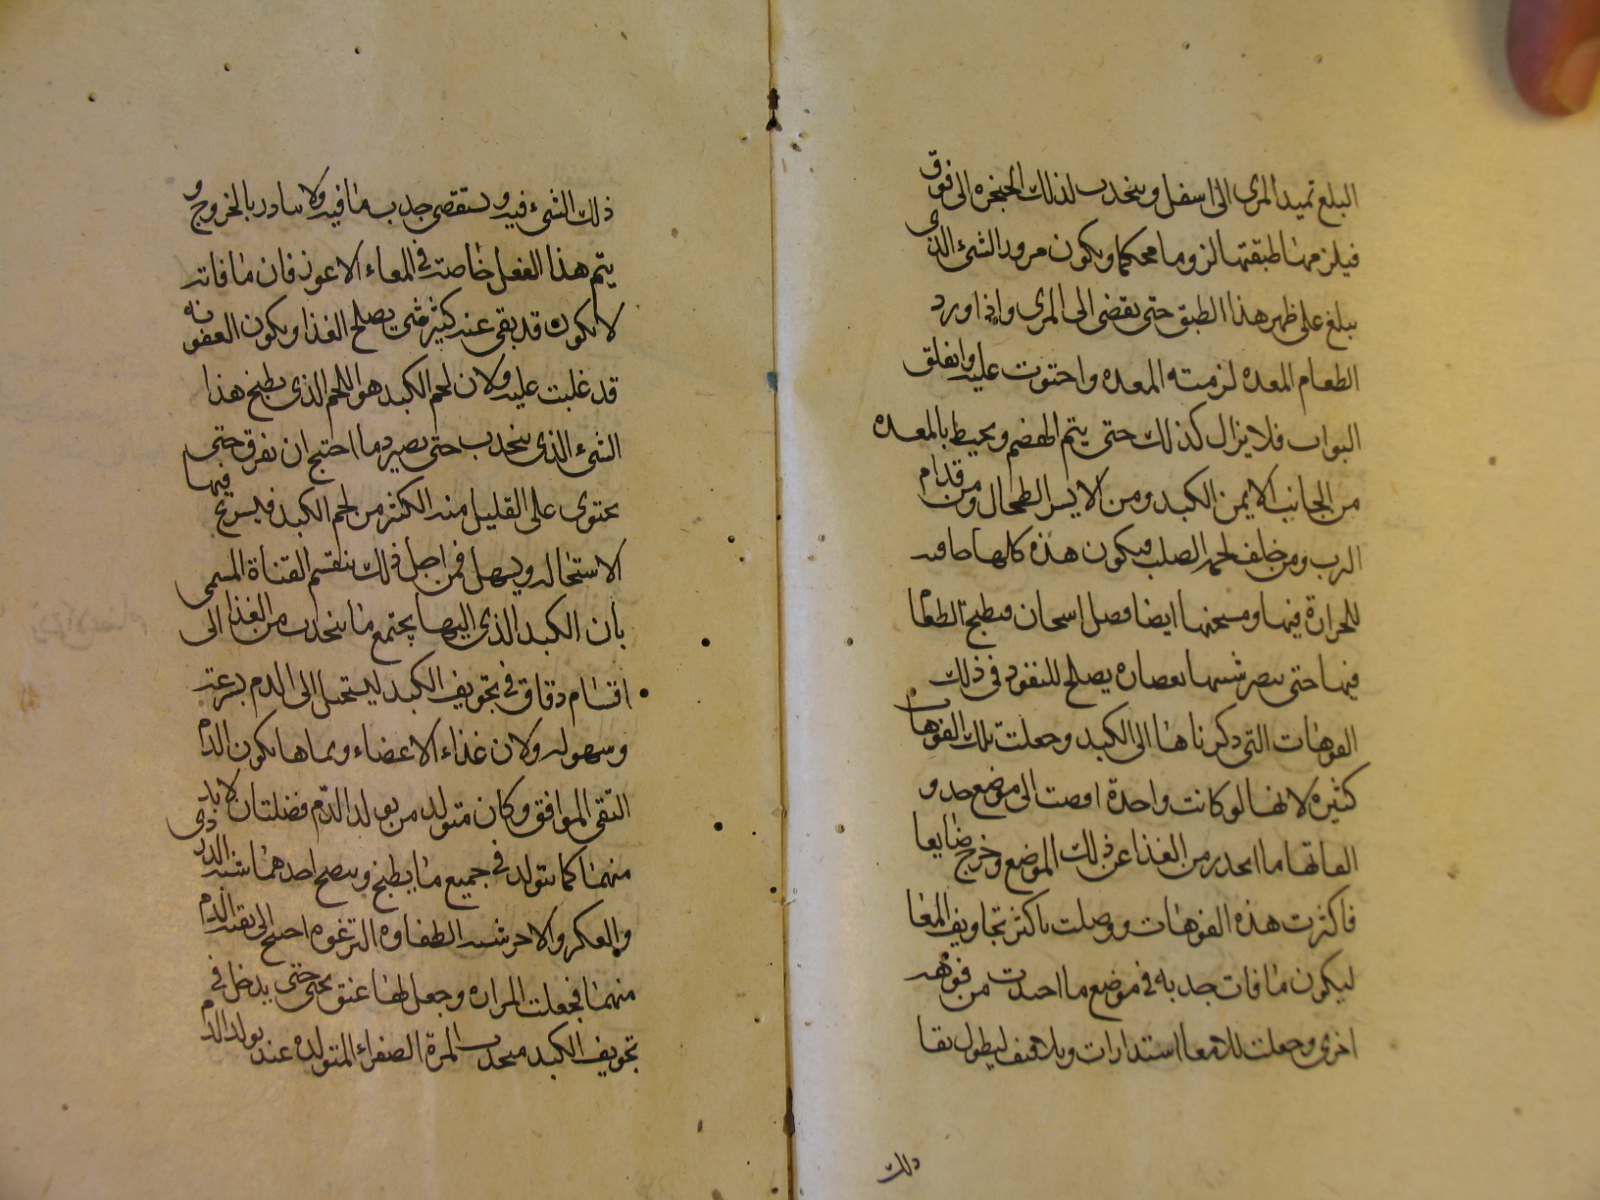 البلع تميد المرى الى اسفل وينجذب لذلك الحنجره الى فوق
فيلزمها طبقتها لزوما محكما ويكون مرور الشئ الذى
يبلع على ظهر هذا الطبق حتى يفضى الى المرى واذا ورد
الطعام المعده لزمته المعده واحتوت عليه وانغلق
البواب فلا يزال كذلك حتى يتم الهضم ويحيط بالمعده
من الجانب الايمن الكبد ومن الايسر الطحال ومن قدام
الرب ومن خلف لحم الصلب فيكون هذه كلها حافيه
للحرارة فيها ومسخنها ايضا فضل اسخان فيطبخ الطعام
فيها حتى يصير شبيها بعصاره يصلح للنفوذ فى ذلك
الفوهات التى ذكرناها الى الكبد وجعلت تلك الفوهات
كثيره لانها لو كانت واحدة افضت الى موضع
ما انحدر من الغذا عن ذلك الموضع وخرج ضايعا
فاكثرت هذه الفوهات ووصلت باكثر تجاويف المعا
ليكون ما فات جذبه فى موضع ما اجتذب من فوهه
اخرى وجعلت للامعا استدارات وتلافيف ليطول بقا
ذلك
ذلك الشئ فيه ويستقصى جذب ما فيه ولا يبادر بالخروج و
يتم هذا الفعل خاصة فى المعاء الاعور فان ما فاته
لا يكون قد بقى عند كثير شى يصلح الغذا ويكون العفونه
قد غلبت عليه ولان لحم الكبد هو اللحم الذى يطبخ هذا
الشئ الذى ينجذب حتى يصير دما احتج ان يفرق حتى
يحتوى على القليل منه الكثير من لحم الكبد فيسرع فيها
الاستحاله ويسهل فمن اجل ذلك ينقسم القناة المسمى
باب الكبد الذى اليها يجتمع ما ينجذب من الغذا الى
اقسام دقاق فى تجويف الكبد ليستحيل الى الدم بسرعة
وسهوله ولان غذاء الاعضاء ونماها يكون الدم
النقى الموافق وكان متولد من تولد الدم فضلتان لا بد
منهما كما يتولد فى جميع ما يطبخ وينضج احدهما شبه الدردى
والعكر والاخر شبه الطفاوه الرغوه احتج الى نقيه الدم
منهما فجعلت المراره وجعل لها عنق يحى حتى يدخل فى
تجويف الكبد فيجذب المرة الصفراء المتولده عند تولد الدم